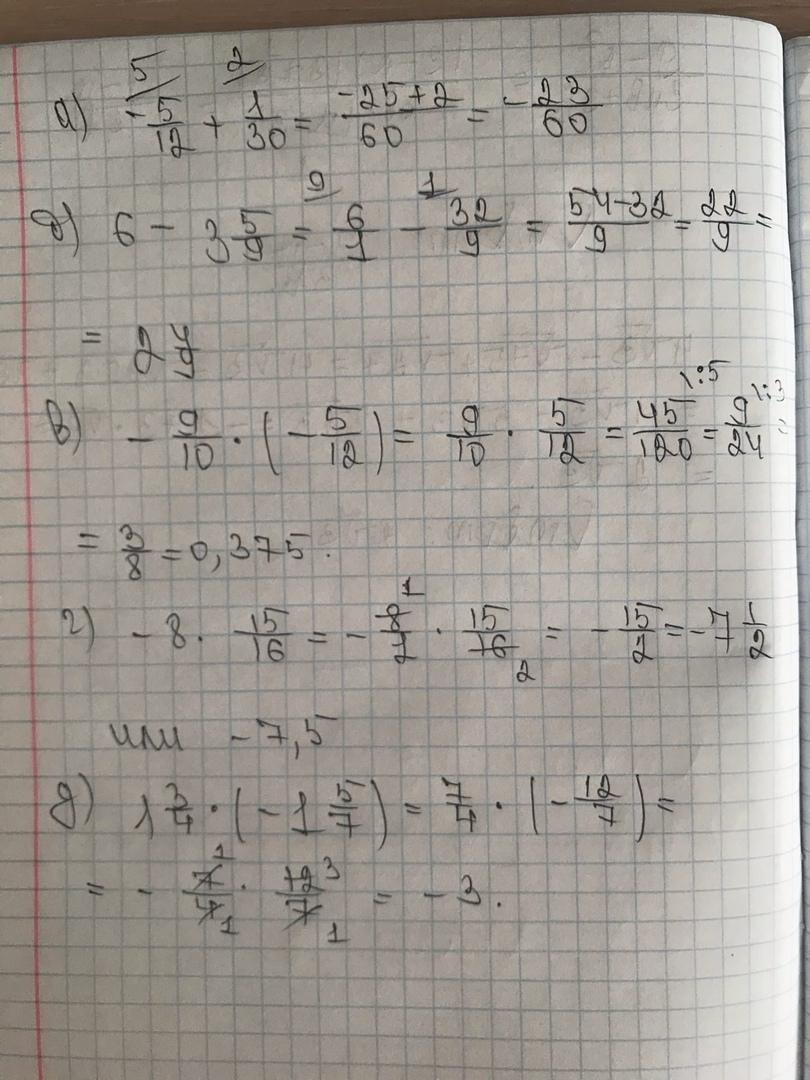 а) -5/12 + 1/30 = -25+2/60 = -23/60
б) 6 - 3 5/9 = 6/1 - 32/9 = 54-32/9 = 22/9 =
= 2 4/9
в) - 9/10 · (- 5/12) = 9/10 · 5/12 = 45/120 = 9/24 =
= 3/8 = 0,375.
г) - 8 · 15/16 = - 8/1 · 15/16 = - 15/2 = - 7 1/2
или - 7,5
д) 1 3/4 · (- 1 5/7) = 7/4 · (- 12/7) =
= - 7/4 · 12/7 = - 3.